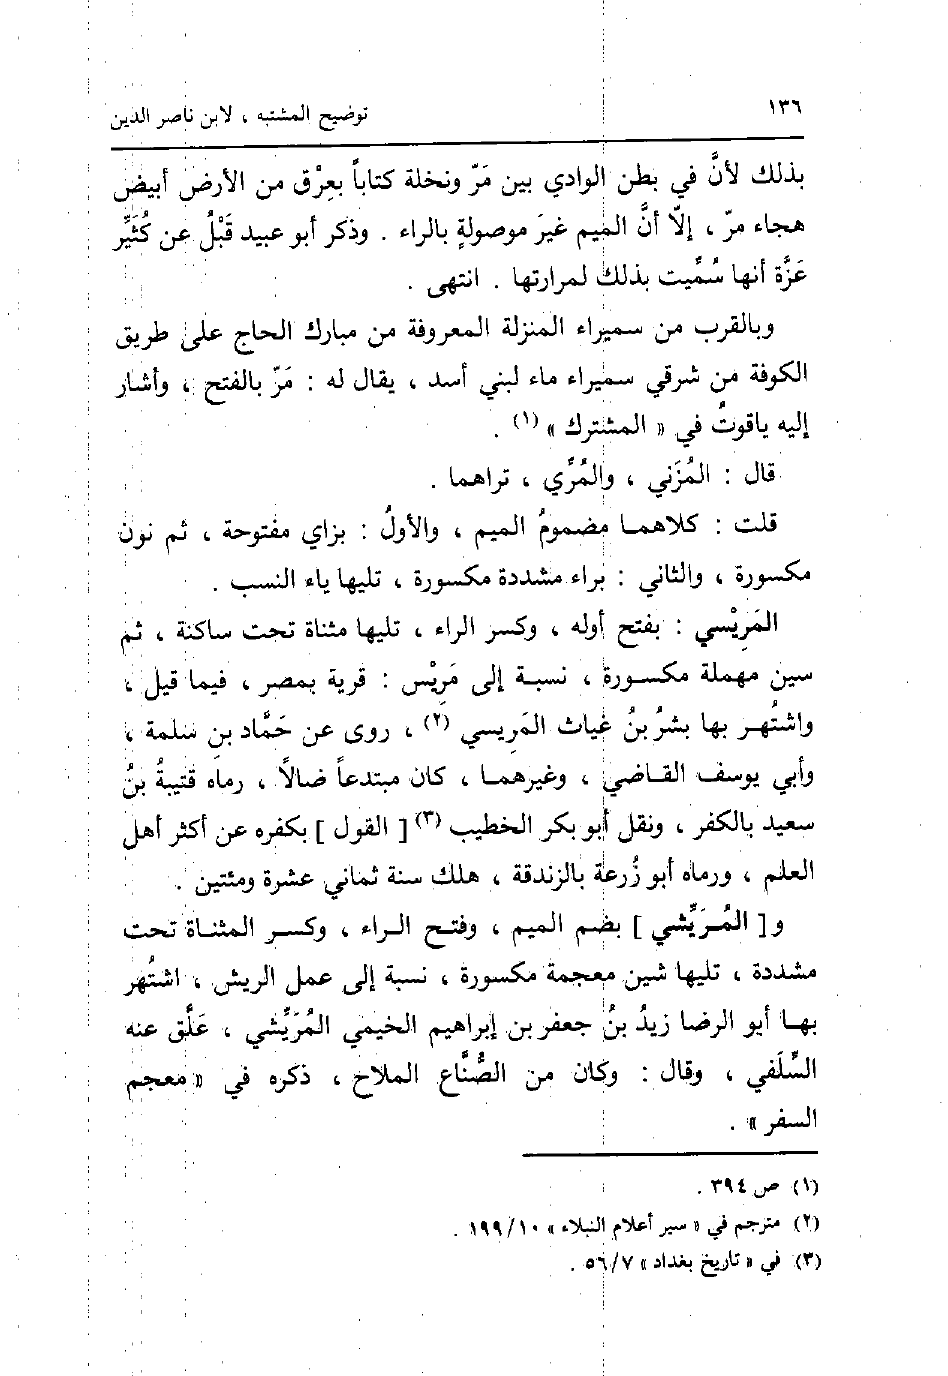 ١٣٦
توضيح المشتبه ، لابن ناصر الدين
بذلك لأنَّ في بطن الوادي بين مَرّ ونخلة كتاباً بعِرْق من الأرض أبيض
هجاء مرّ ، إلّا أنَّ الميم غيرَ موصولةٍ بالراء . وذكر أبو عبيد قَبْلُ عن كُثَيِّر
عَزَّة أنها سُمِّيت بذلك لمرارتها . انتهى .
وبالقرب من سميراء المنزلة المعروفة من مبارك الحاج على طريق
الكوفة من شرقي سميراء ماء لبني أسد ، يقال له : مَرّ بالفتح ، وأشار
إليه ياقوتُ في « المشترك » (١) .
قال : المُزَني ، والمُرِّي ، تراهما .
قلت : كلاهما مضمومُ الميم ، والأولُ : بزاي مفتوحة ، ثم نون
مكسورة ، والثاني : براء مشددة مكسورة ، تليها ياء النسب .
المَرِيْسي : بفتح أوله ، وكسر الراء ، تليها مثناة تحت ساكنة ، ثم
سين مهملة مكسورة ، نسبة إلى مَرِيْس : قرية بمصر ، فيما قيل ،
واشتُهر بها بشرُ بنُ غياث المَرِيسي (٢) ، روى عن حَمَّاد بن سلمة ،
وأبي يوسف القاضي ، وغيرهما ، كان مبتدعاً ضالاً ، رماه قتيبةُ بنُ
سعيد بالكفر ، ونقل أبو بكر الخطيب (٣) [ القول ] بكفره عن أكثر أهل
العلم ، ورماه أبو زُرعة بالزندقة ، هلك سنة ثماني عشرة ومئتين .
و [ المُرَيِّشي ] بضم الميم ، وفتح الراء ، وكسر المثناة تحت
مشددة ، تليها شين معجمة مكسورة ، نسبة إلى عمل الريش ، اشتُهر
بها أبو الرضا زيدُ بنُ جعفر بن إبراهيم الخيمي المُرَيِّشي ، عَلَّق عنه
السِّلَفي ، وقال : وكان من الصُّنَّاع الملاح ، ذكره في « معجم
السفر » .
(١) ص ٣٩٤ .
(٢) مترجم في « سير أعلام النبلاء » ١٩٩/١٠ .
(٣) في « تاريخ بغداد » ٥٦/٧ .